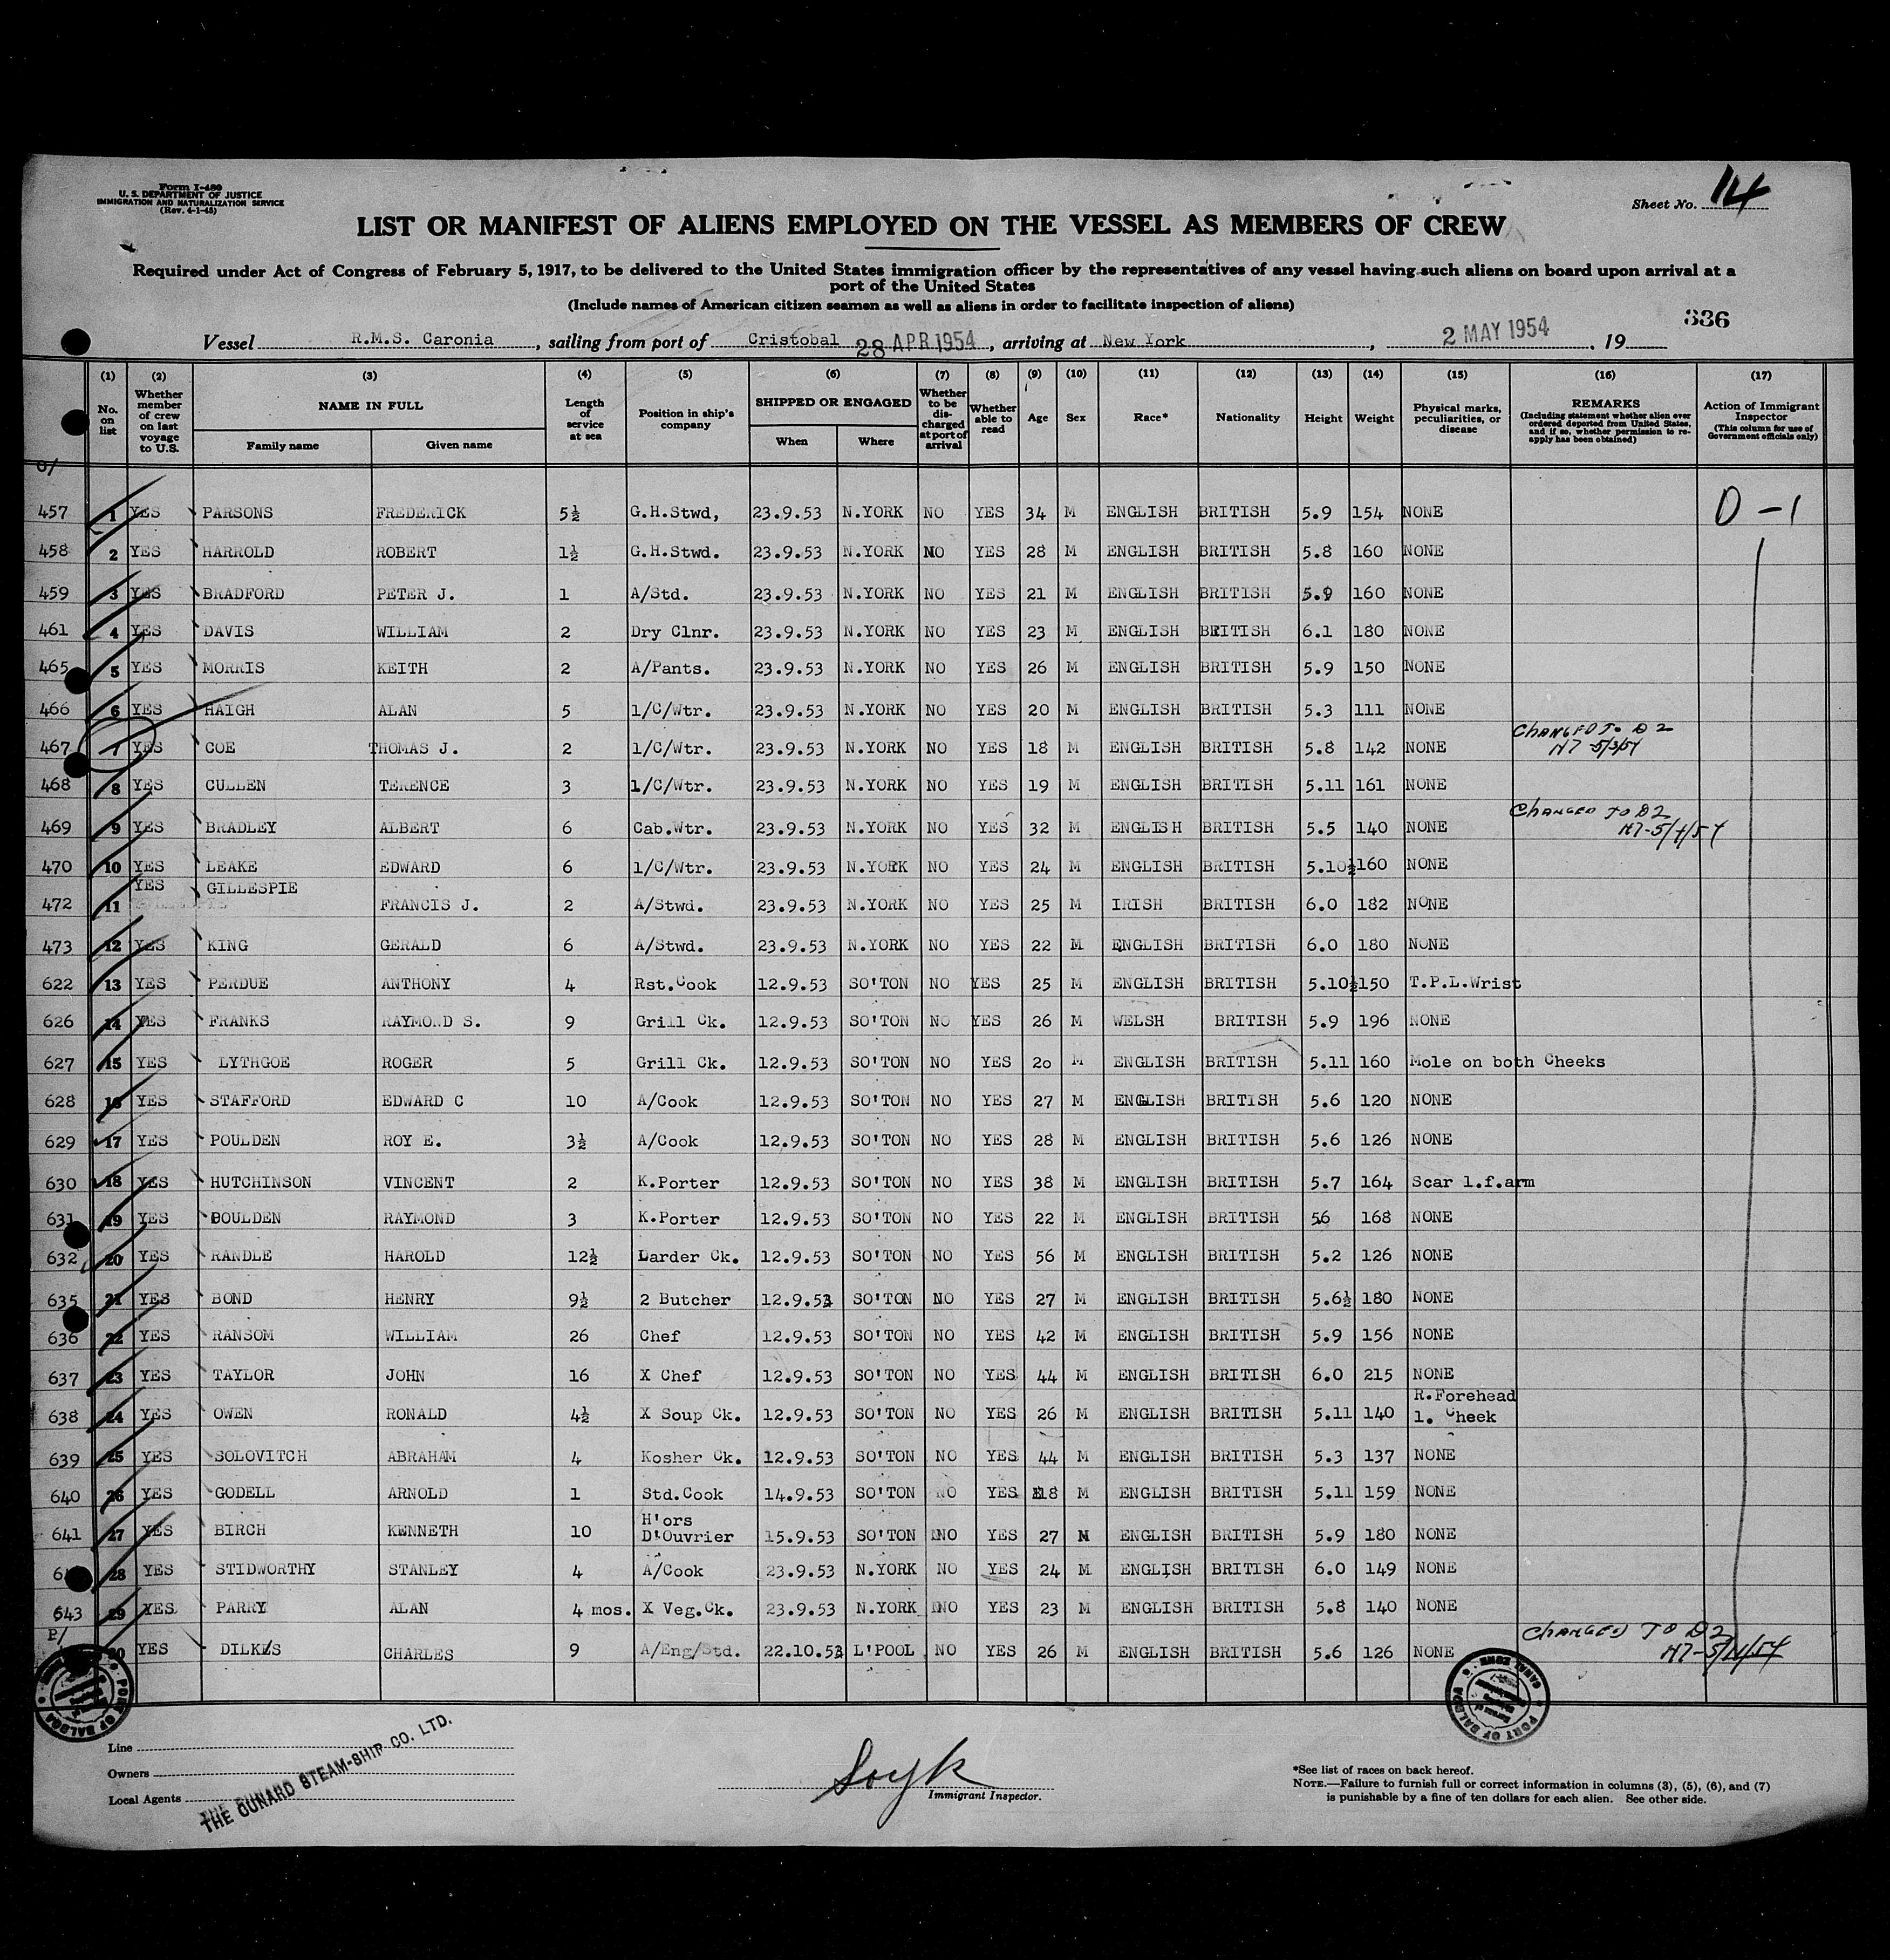 Form I-480
U. S. DEPARTMENT OF JUSTICE
IMMIGRATION AND NATURALIZATION SERVICE
(Rev. 4-1-45)
Sheet No. 14
LIST OR MANIFEST OF ALIENS EMPLOYED ON THE VESSEL AS MEMBERS OF CREW
Required under Act of Congress of February 5, 1917, to be delivered to the United States immigration officer by the representatives of any vessel having such aliens on board upon arrival at a
port of the United States
(Include names of American citizen seamen as well as aliens in order to facilitate inspection of aliens)
336
Vessel R.M.S. Caronia, sailing from port of Cristobal 28 APR 1954, arriving at New York, 2 MAY 1954, 19
(1) (2) (3) (4) (5) (6) (7) (8) (9) (10) (11) (12) (13) (14) (15) (16) (17)
No. on list
Whether member of crew on last voyage to U.S.
NAME IN FULL
Family name
Given name
Length of service at sea
Position in ship's company
SHIPPED OR ENGAGED
When
Where
Whether to be discharged at port of arrival
Whether able to read
Age
Sex
Race*
Nationality
Height
Weight
Physical marks, peculiarities, or disease
REMARKS
(Including statement whether alien ever ordered deported from United States, and if so, whether permission to reapply has been obtained)
Action of Immigrant Inspector
(This column for use of Government officials only)
O/
457 1 YES PARSONS FREDERICK 5½ G.H.Stwd, 23.9.53 N.YORK NO YES 34 M ENGLISH BRITISH 5.9 154 NONE D-1
458 2 YES HARROLD ROBERT 1½ G.H.Stwd. 23.9.53 N.YORK NO YES 28 M ENGLISH BRITISH 5.8 160 NONE
459 3 YES BRADFORD PETER J. 1 A/Std. 23.9.53 N.YORK NO YES 21 M ENGLISH BRITISH 5.9 160 NONE
461 4 YES DAVIS WILLIAM 2 Dry Clnr. 23.9.53 N.YORK NO YES 23 M ENGLISH BRITISH 6.1 180 NONE
465 5 YES MORRIS KEITH 2 A/Pants. 23.9.53 N.YORK NO YES 26 M ENGLISH BRITISH 5.9 150 NONE
466 6 YES HAIGH ALAN 5 1/C/Wtr. 23.9.53 N.YORK NO YES 20 M ENGLISH BRITISH 5.3 111 NONE
467 7 YES COE THOMAS J. 2 1/C/Wtr. 23.9.53 N.YORK NO YES 18 M ENGLISH BRITISH 5.8 142 NONE CHANGED TO D2
5/3/54
468 8 YES CULLEN TERENCE 3 1/C/Wtr. 23.9.53 N.YORK NO YES 19 M ENGLISH BRITISH 5.11 161 NONE
469 9 YES BRADLEY ALBERT 6 Cab.Wtr. 23.9.53 N.YORK NO YES 32 M ENGLISH BRITISH 5.5 140 NONE CHANGED TO D2
470 10 YES LEAKE EDWARD 6 1/C/Wtr. 23.9.53 N.YORK NO YES 24 M ENGLISH BRITISH 5.10½ 160 NONE
472 11 YES GILLESPIE FRANCIS J. 2 A/Stwd. 23.9.53 N.YORK NO YES 25 M IRISH BRITISH 6.0 182 NONE
473 12 YES KING GERALD 6 A/Stwd. 23.9.53 N.YORK NO YES 22 M ENGLISH BRITISH 6.0 180 NONE
622 13 YES PERDUE ANTHONY 4 Rst.Cook 12.9.53 SO'TON NO YES 25 M ENGLISH BRITISH 5.10½ 150 T.P.L.Wrist
626 14 YES FRANKS RAYMOND S. 9 Grill Ck. 12.9.53 SO'TON NO YES 26 M WELSH BRITISH 5.9 196 NONE
627 15 YES LYTHGOE ROGER 5 Grill Ck. 12.9.53 SO'TON NO YES 2o M ENGLISH BRITISH 5.11 160 Mole on both Cheeks
628 16 YES STAFFORD EDWARD C 10 A/Cook 12.9.53 SO'TON NO YES 27 M ENGLISH BRITISH 5.6 120 NONE
629 17 YES POULDEN ROY E. 3½ A/Cook 12.9.53 SO'TON NO YES 28 M ENGLISH BRITISH 5.6 126 NONE
630 18 YES HUTCHINSON VINCENT 2 K.Porter 12.9.53 SO'TON NO YES 38 M ENGLISH BRITISH 5.7 164 Scar l.f.arm
631 19 YES POULDEN RAYMOND 3 K.Porter 12.9.53 SO'TON NO YES 22 M ENGLISH BRITISH 56 168 NONE
632 20 YES RANDLE HAROLD 12½ Larder Ck. 12.9.53 SO'TON NO YES 56 M ENGLISH BRITISH 5.2 126 NONE
635 21 YES BOND HENRY 9½ 2 Butcher 12.9.53 SO'TON NO YES 27 M ENGLISH BRITISH 5.6½ 180 NONE
636 22 YES RANSOM WILLIAM 26 Chef 12.9.53 SO'TON NO YES 42 M ENGLISH BRITISH 5.9 156 NONE
637 23 YES TAYLOR JOHN 16 X Chef 12.9.53 SO'TON NO YES 44 M ENGLISH BRITISH 6.0 215 NONE
638 24 YES OWEN RONALD 4½ X Soup Ck. 12.9.53 SO'TON NO YES 26 M ENGLISH BRITISH 5.11 140 R.Forehead l. Cheek
639 25 YES SOLOVITCH ABRAHAM 4 Kosher Ck. 12.9.53 SO'TON NO YES 44 M ENGLISH BRITISH 5.3 137 NONE
640 26 YES GODELL ARNOLD 1 Std.Cook 14.9.53 SO'TON NO YES 18 M ENGLISH BRITISH 5.11 159 NONE
641 27 YES BIRCH KENNETH 10 H'ors D'Ouvrier 15.9.53 SO'TON NO YES 27 M ENGLISH BRITISH 5.9 180 NONE
28 YES STIDWORTHY STANLEY 4 A/Cook 23.9.53 N.YORK NO YES 24 M ENGLISH BRITISH 6.0 149 NONE
643 29 YES PARRY ALAN 4 mos. X Veg.Ck. 23.9.53 N.YORK NO YES 23 M ENGLISH BRITISH 5.8 140 NONE
P/
30 YES DILKES CHARLES 9 A/Eng/Std. 22.10.53 L'POOL NO YES 26 M ENGLISH BRITISH 5.6 126 NONE CHANGED TO D2
PORT OF BALBOA CANAL ZONE
PORT OF BALBOA CANAL ZONE
Line
Owners
Local Agents
THE CUNARD STEAM-SHIP CO. LTD.
Immigrant Inspector.
*See list of races on back hereof.
NOTE.—Failure to furnish full or correct information in columns (3), (5), (6), and (7)
is punishable by a fine of ten dollars for each alien. See other side.